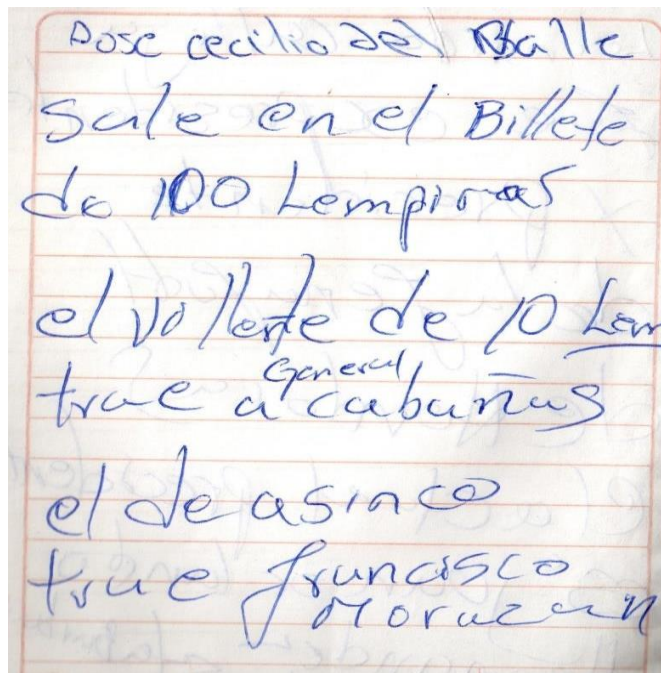 Jose cecilio del Balle
sale en el Billete
de 100 Lempiras
el villente de 10 Lem
General
trae a cabañas
el de asinco
trae francisco
Morazan